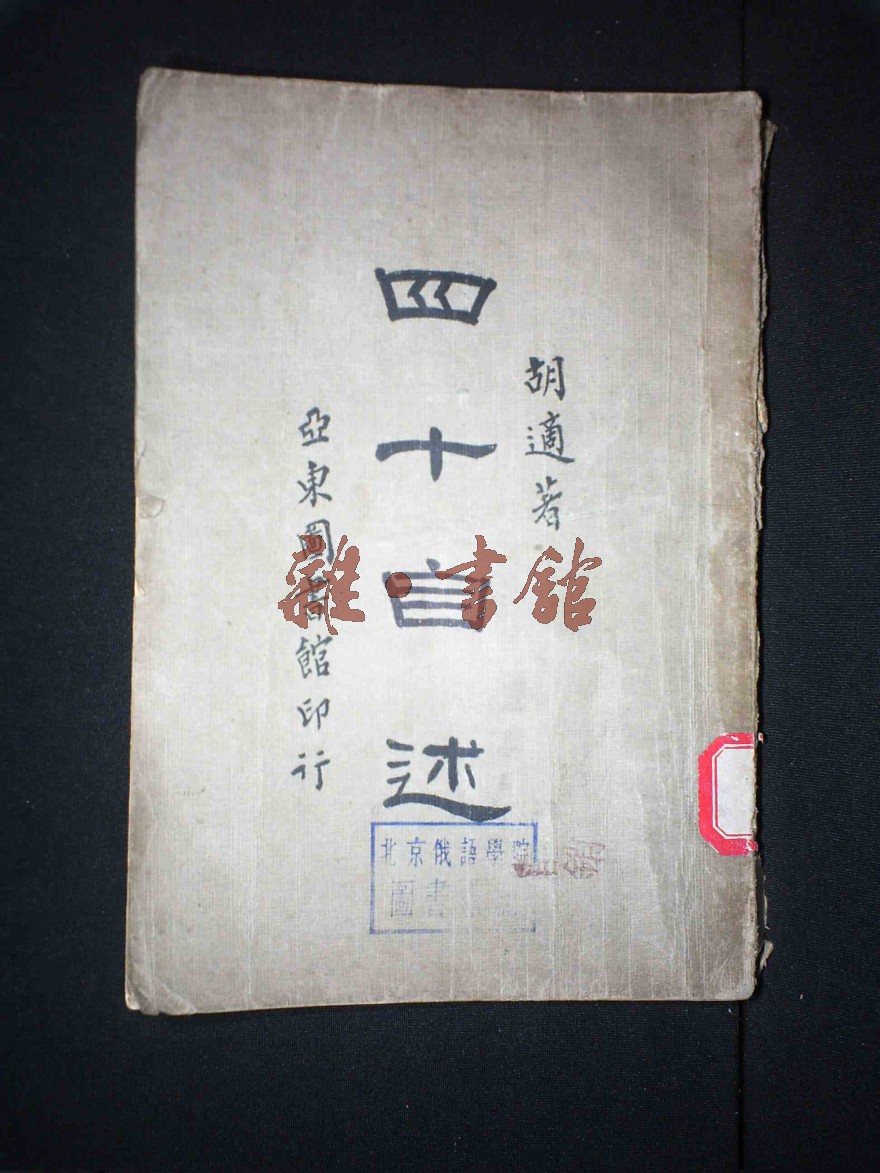 胡適著
四十自述
亞東圖書館印行
雜·書館
北京俄語學院
圖書